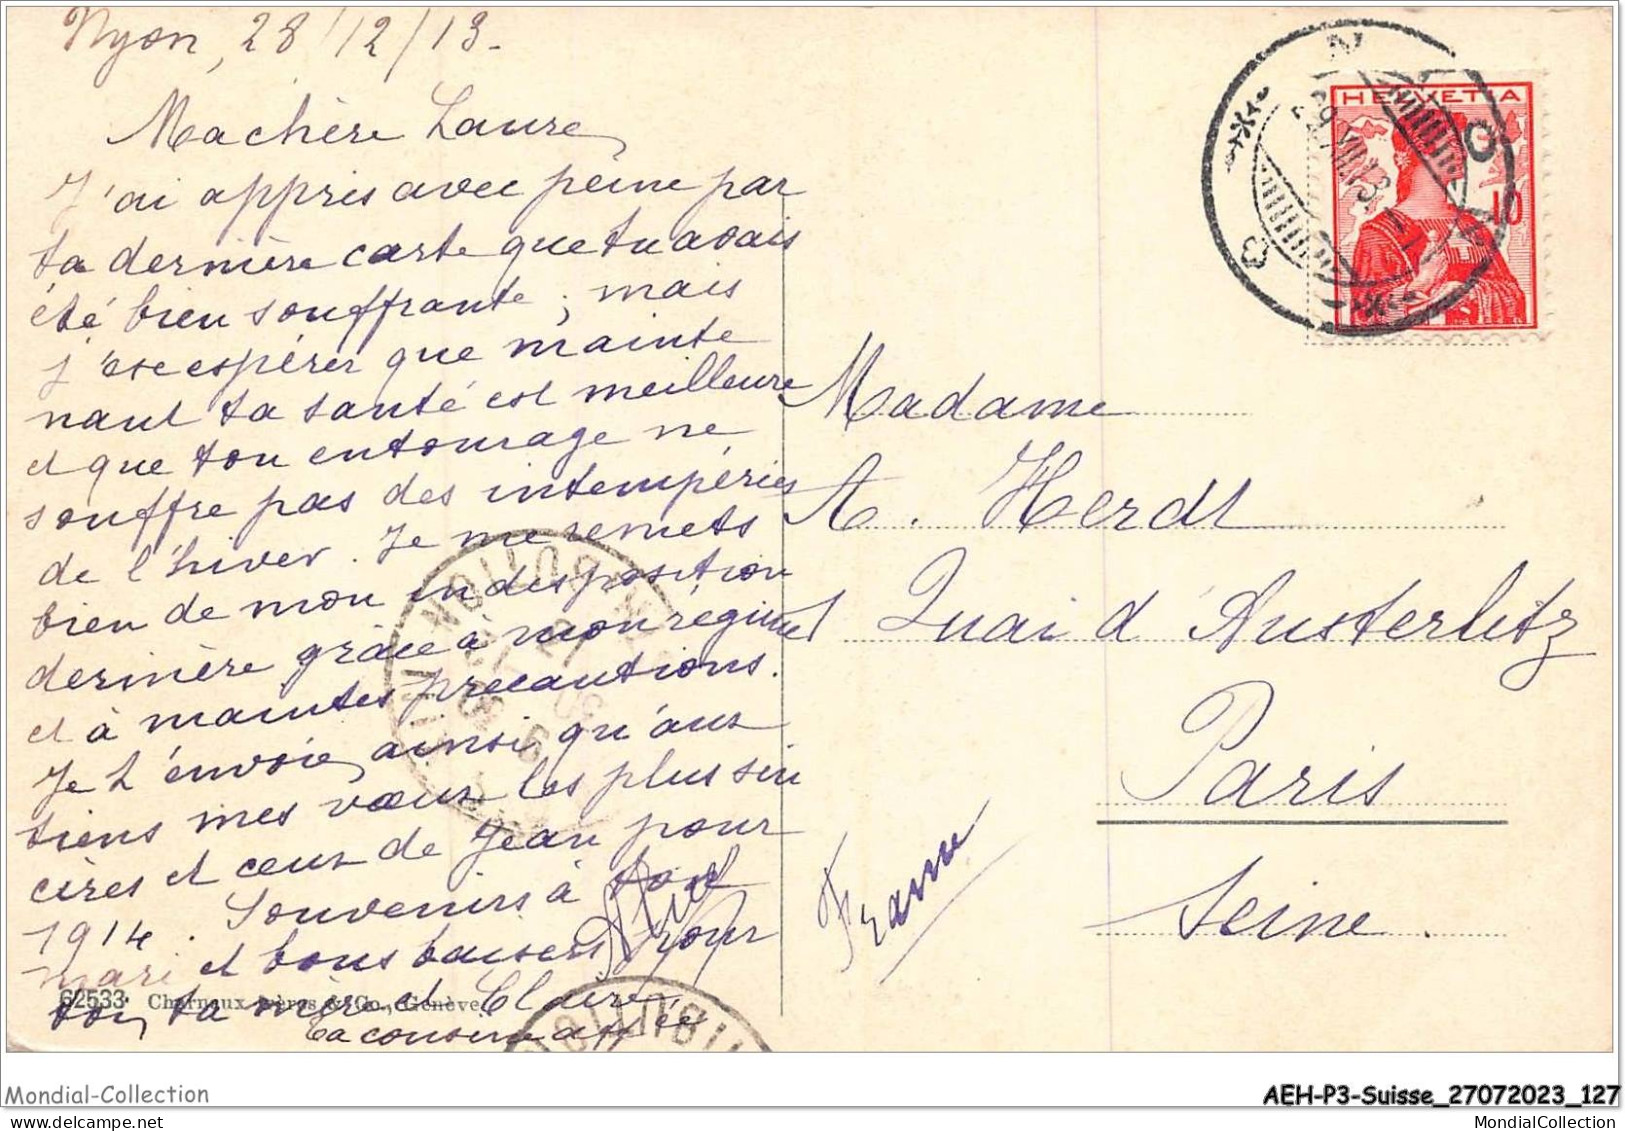 Nyon, 28/12/13.
Ma chère Laure,
J'ai appris avec peine par
ta dernière carte que tu avais
été bien souffrante ; mais
j'ose espérer que mainte
nant ta santé est meilleure
et que ton entourage ne
souffre pas des intempéries
de l'hiver. Je me remets
bien de mon indisposition
dernière grâce à mon régime
et à maintes précautions.
Je t'envoie, ainsi qu'aux
tiens mes vœux les plus sin
cères et ceux de Jean pour
1914. Souvenirs à ton
mari et bons baisers pour
toi, ta mère et Claire,
ta cousine aff
62533 Charnaux frères & Co., Genève
HELVETIA
10
NYON
Madame
A. Herdt
Quai d'Austerlitz
Paris
Seine.
France
DISTRIBUTION
Mondial-Collection
AEH-P3-Suisse_27072023_127
MondialCollection